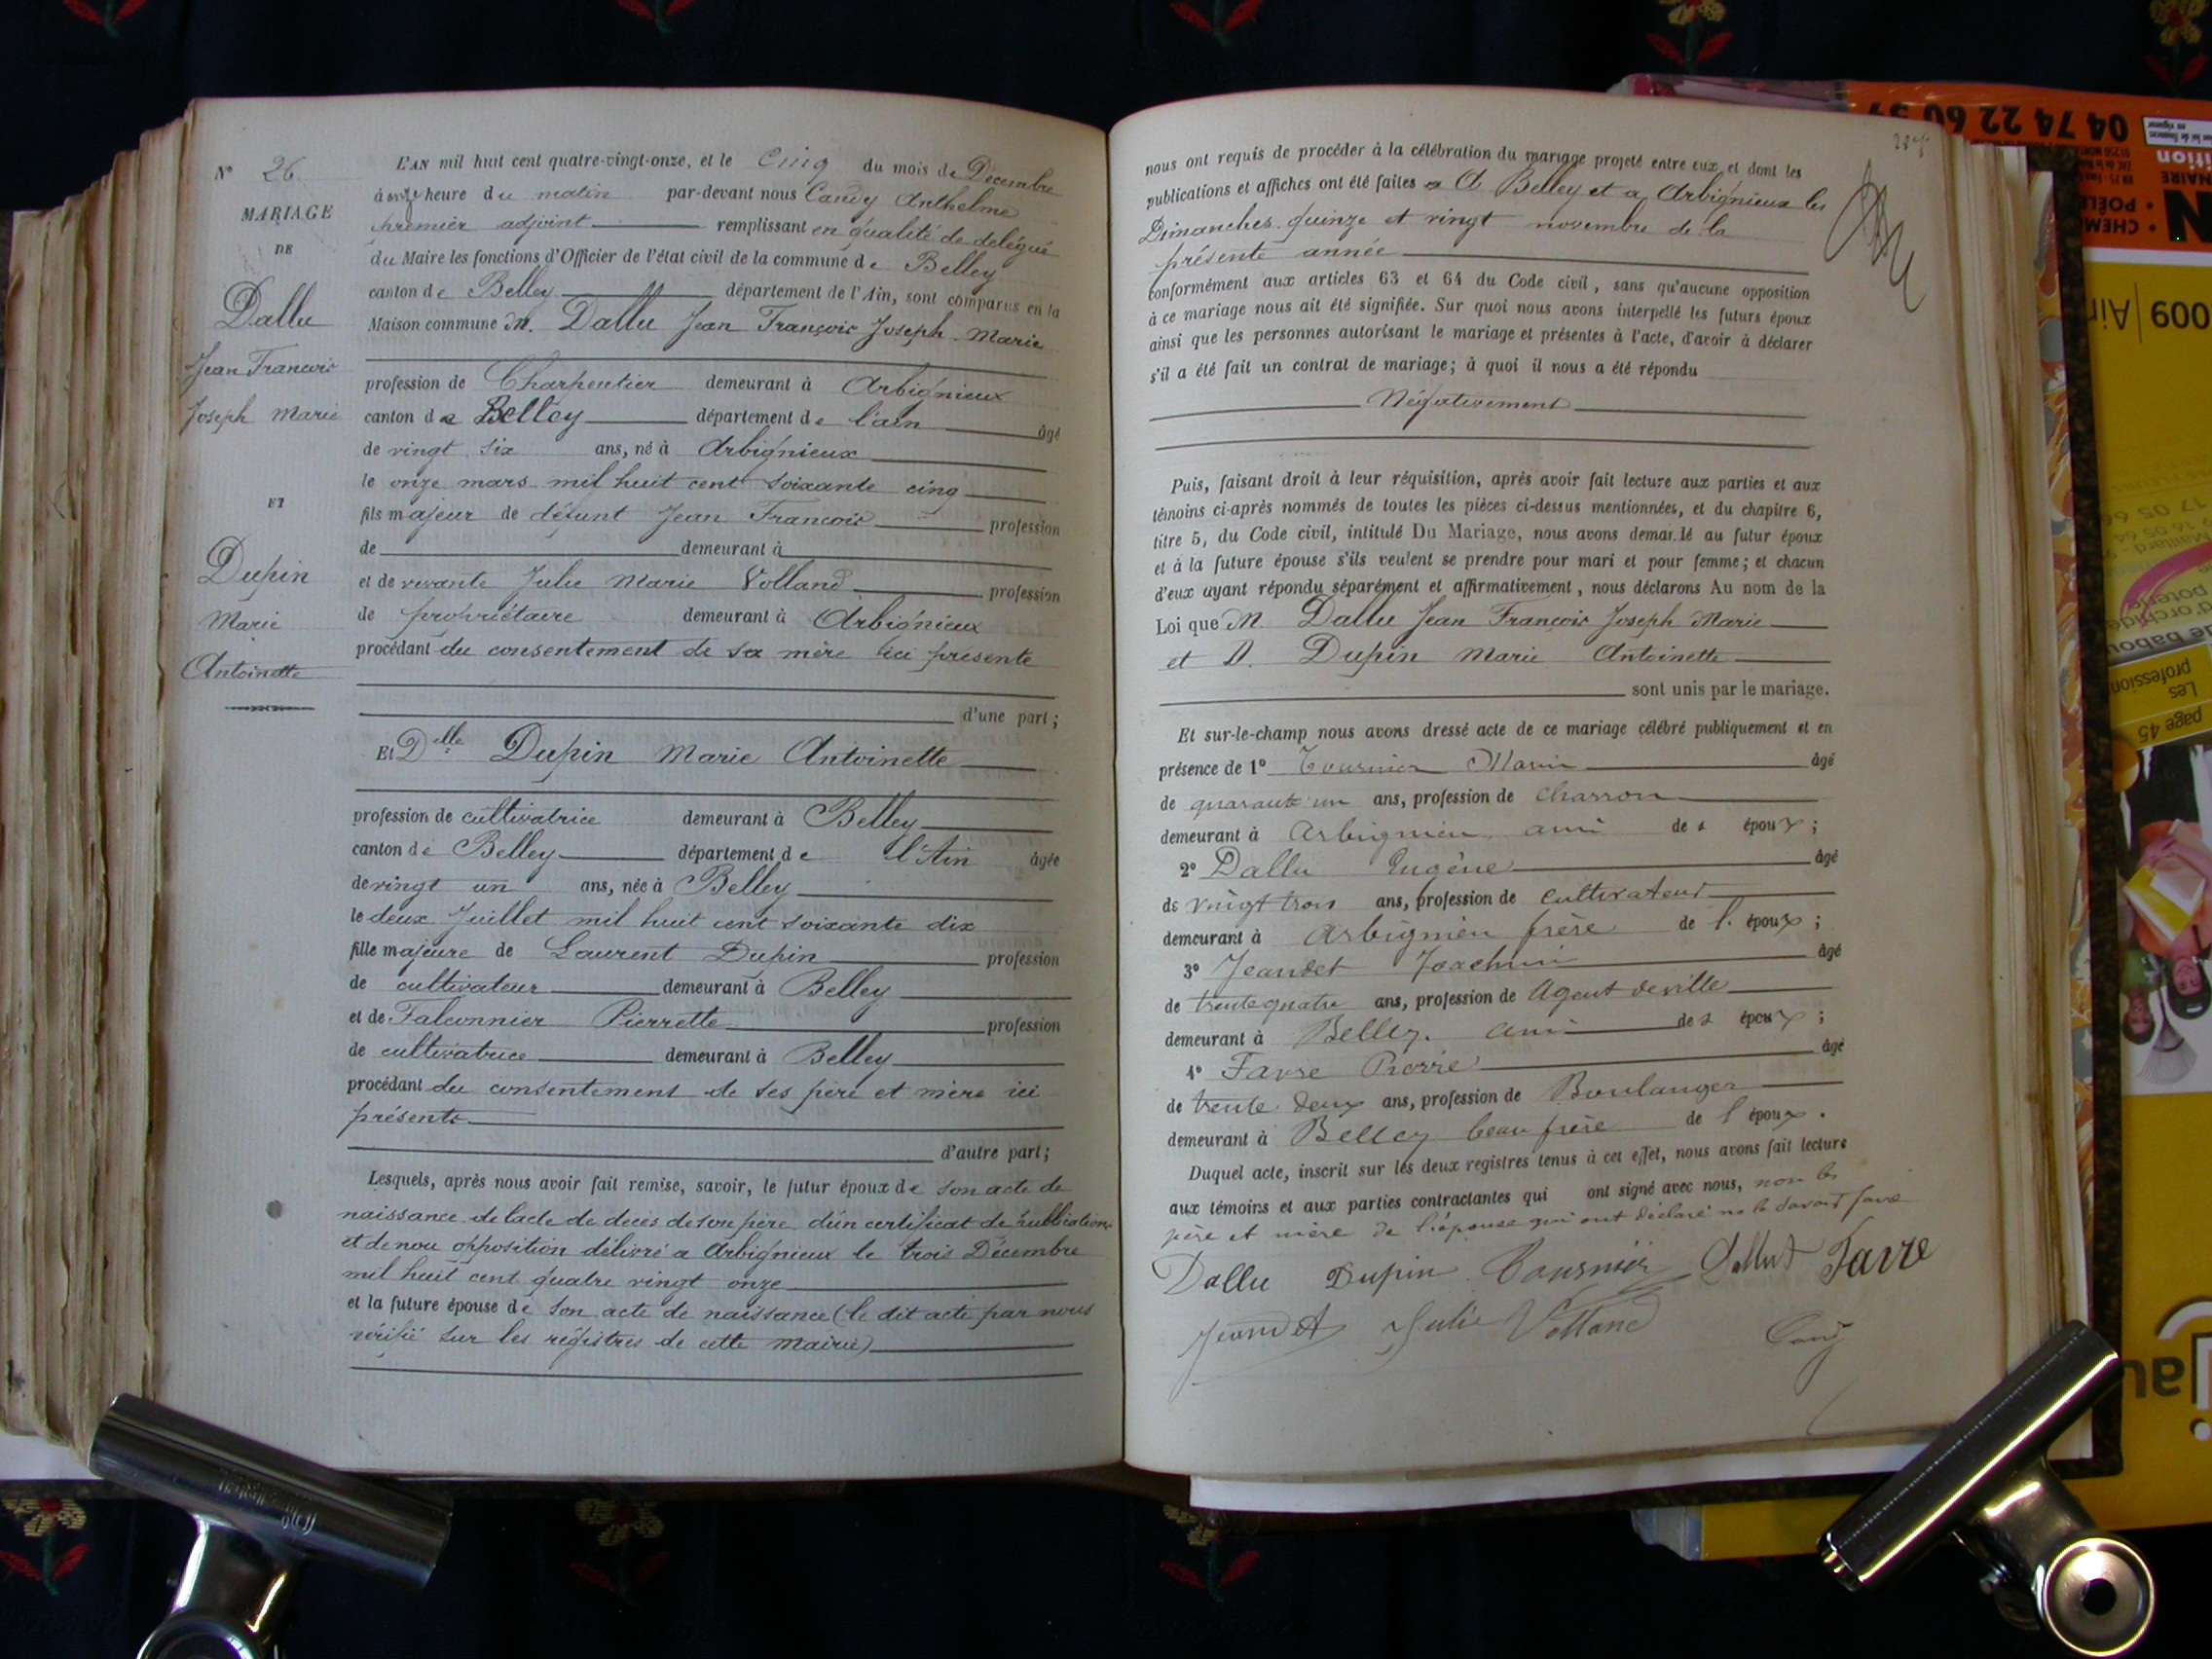 N° 26
MARIAGE
DE
Dallu
Jean Francois
Joseph Marie
ET
Dupin
Marie
Antoinette
L'AN mil huit cent quatre-vingt-onze, et le Cinq du mois de Décembre
à onze heure du matin par-devant nous Candy Anthelme
premier adjoint remplissant en qualité de délégué
du Maire les fonctions d'Officier de l'état civil de la commune de Belley
canton de Belley département de l'Ain, sont comparus en la
Maison commune M. Dallu Jean François Joseph Marie
profession de Charpentier demeurant à Arbignieux
canton de Belley département de l'ain âgé
de vingt six ans, né à Arbignieux
le onze mars mil huit cent soixante cinq
fils majeur de défunt Jean Francois profession
de demeurant à
et de vivante Julie Marie Volland profession
de propriétaire demeurant à Arbignieux
procédant du consentement de sa mère ici présente
d'une part;
Et Delle Dupin Marie Antoinette
profession de cultivatrice demeurant à Belley
canton de Belley département de l'Ain âgée
de vingt un ans, née à Belley
le deux Juillet mil huit cent soixante dix
fille majeure de Laurent Dupin profession
de cultivateur demeurant à Belley
et de Falconnier Pierrette profession
de cultivatrice demeurant à Belley
procédant du consentement de ses père et mère ici
présents
d'autre part;
Lesquels, après nous avoir fait remise, savoir, le futur époux de son acte de
naissance de lacte de décès de son père d'un certificat de publications
et de non opposition délivré a Arbignieux le trois Décembre
mil huit cent quatre vingt onze
et la future épouse de son acte de naissance (le dit acte par nous
vérifié sur les régistres de cette mairie)
nous ont requis de procéder à la célébration du mariage projeté entre eux, et dont les
publications et affiches ont été faites a A Belley et a Arbignieux les
Dimanches quinze et vingt novembre de la
présente année
conformément aux articles 63 et 64 du Code civil, sans qu'aucune opposition
à ce mariage nous ait été signifiée. Sur quoi nous avons interpellé les futurs époux
ainsi que les personnes autorisant le mariage et présentes à l'acte, d'avoir à déclarer
s'il a été fait un contrat de mariage; à quoi il nous a été répondu
Négativement
Puis, faisant droit à leur réquisition, après avoir fait lecture aux parties et aux
témoins ci-après nommés de toutes les pièces ci-dessus mentionnées, et du chapitre 6,
titre 5, du Code civil, intitulé Du Mariage, nous avons demandé au futur époux
et à la future épouse s'ils veulent se prendre pour mari et pour femme; et chacun
d'eux ayant répondu séparément et affirmativement, nous déclarons Au nom de la
Loi que M Dallu Jean François Joseph Marie
et D. Dupin Marie Antoinette
sont unis par le mariage.
Et sur-le-champ nous avons dressé acte de ce mariage célébré publiquement et en
présence de 1° Tournier Marin âgé
de quarante un ans, profession de charron
demeurant à Arbignieu ami des époux;
2° Dallu Eugène âgé
de vingt trois ans, profession de cultivateur
demeurant à Arbignieu frère de l'époux;
3° Jeandet Joachim âgé
de trente quatre ans, profession de Agent de ville
demeurant à Belley. ami des époux;
4° Favre Pierre âgé
de trente deux ans, profession de Boulanger
demeurant à Belley beau frère de l époux.
Duquel acte, inscrit sur les deux registres tenus à cet effet, nous avons fait lecture
aux témoins et aux parties contractantes qui ont signé avec nous, non les
père et mère de l'épouse qui ont déclaré ne le savoir faire
Dallu Dupin Tournier Dallut Favre
Jeandet Julie Volland Candy
04 74 22 60
009
Ain
Les
page 45